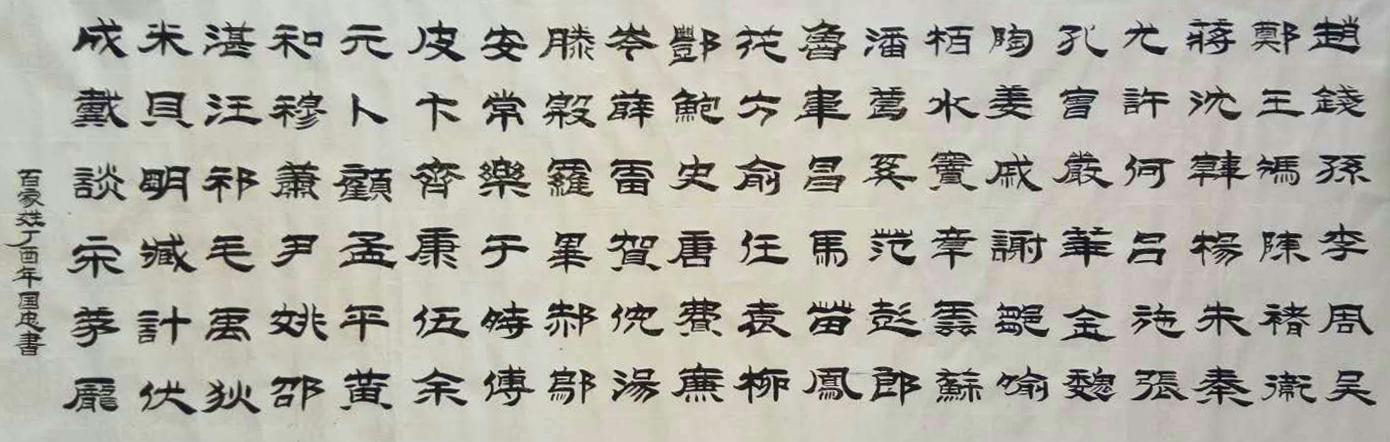 趙錢孫李周吳
鄭王馮陳褚衛
蔣沈韓楊朱秦
尤許何呂施張
孔曹嚴華金魏
陶姜戚謝鄒喻
栢水竇章雲蘇
潘葛奚范彭郎
魯韋昌馬苗鳳
花方俞任袁柳
酆鮑史唐費廉
岑薛雷賀倪湯
滕殷羅畢郝鄔
安常樂于時傅
皮卞齊康伍余
元卜顧孟平黃
和穆蕭尹姚邵
湛汪祁毛禹狄
米貝明臧計伏
成戴談宋茅龐
百家姓丁酉年国忠書